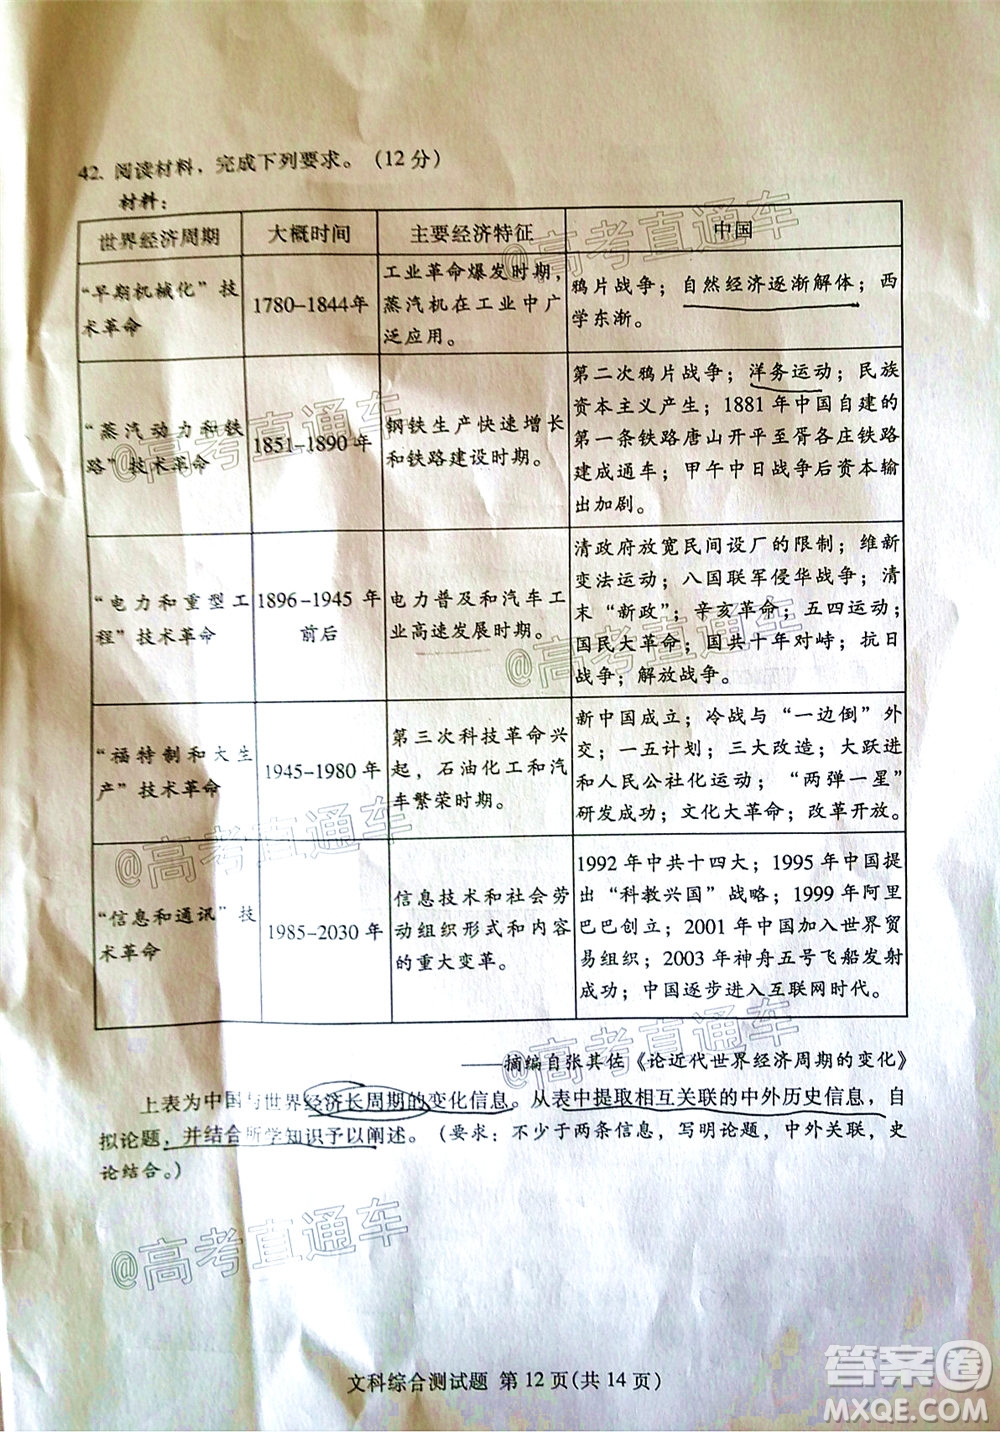 42. 阅读材料，完成下列要求。（12 分）
材料：
世界经济周期 大概时间 主要经济特征 中国
“早期机械化”技
术革命
1780-1844年
工业革命爆发时期，
蒸汽机在工业中广
泛应用。
鸦片战争；自然经济逐渐解体；西
学东渐。
“蒸汽动力和铁
路”技术革命
1851-1890 年
钢铁生产快速增长
和铁路建设时期。
第二次鸦片战争；洋务运动；民族
资本主义产生；1881 年中国自建的
第一条铁路唐山开平至胥各庄铁路
建成通车；甲午中日战争后资本输
出加剧。
“电力和重型工
程”技术革命
1896-1945 年
前后
电力普及和汽车工
业高速发展时期。
清政府放宽民间设厂的限制；维新
变法运动；八国联军侵华战争；清
末“新政”；辛亥革命；五四运动；
国民大革命；国共十年对峙；抗日
战争；解放战争。
“福特制和大生
产”技术革命
1945-1980 年
第三次科技革命兴
起，石油化工和汽
车繁荣时期。
新中国成立；冷战与“一边倒”外
交；一五计划；三大改造；大跃进
和人民公社化运动；“两弹一星”
研发成功；文化大革命；改革开放。
“信息和通讯”技
术革命
1985-2030 年
信息技术和社会劳
动组织形式和内容
的重大变革。
1992 年中共十四大；1995 年中国提
出“科教兴国”战略；1999 年阿里
巴巴创立；2001 年中国加入世界贸
易组织；2003 年神舟五号飞船发射
成功；中国逐步进入互联网时代。
——摘编自张其佐《论近代世界经济周期的变化》
上表为中国与世界经济长周期的变化信息。从表中提取相互关联的中外历史信息，自
拟论题，并结合所学知识予以阐述。（要求：不少于两条信息，写明论题，中外关联，史
论结合。）
文科综合测试题 第 12 页(共 14 页)
@高考直通车
@高考直通车
@高考直通车
@高考直通车
@高考直通车
@高考直通车
答案圈
MXQE.COM